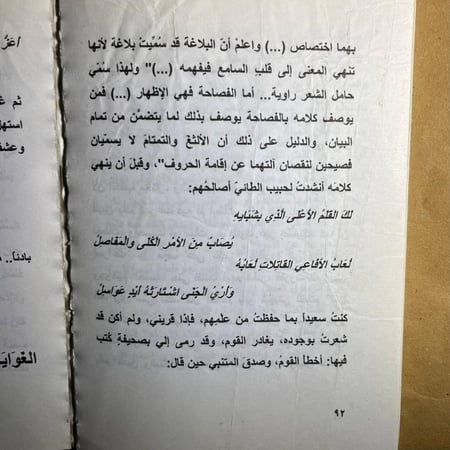 بهما اختصاص (...) واعلمْ أنّ البلاغة قد سُمِّيتْ بلاغة لأنها
تنهي المعنى إلى قلبِ السامع فيفهمه (...)" ولهذا سُمّي
حامل الشعر راوية... أما الفصاحة فهي الإظهار (...) فمن
يوصف كلامه بالفصاحة يوصف بذلك لما يتضمَّن من تمام
البيان، والدليل على ذلك أن الألثغَ والتمتامَ لا يسمَّيان
فصيحين لنقصان آلتهما عن إقامة الحروف"، وقبلَ أن ينهي
كلامَه أنشدتُ لحبيب الطائيّ أصالحُهم:
لكَ القلمُ الأعْلى الّذي بِشَبَابِهِ
يُصَابُ مِنَ الأمْرِ الكُلَى والمَفَاصِلُ
لُعَابُ الأفاعِي القَاتِلاتِ لُعَابُهُ
وَأرْيُ الجَنَى اشْتَارَتهُ أيْدٍ عَوَاسِلُ
كنتُ سعيداً بما حفظت من علمِهم، فإذا قريني، ولم أكن قد
شعرتُ بوجوده، يغادر القوم، وقد رمى إلي بصحيفةٍ كُتب
فيها: أخطأ القومُ، وصدقَ المتنبي حين قال:
٩٢
أعَزُّ
ثم
استهل
وعشق
بادئاً..